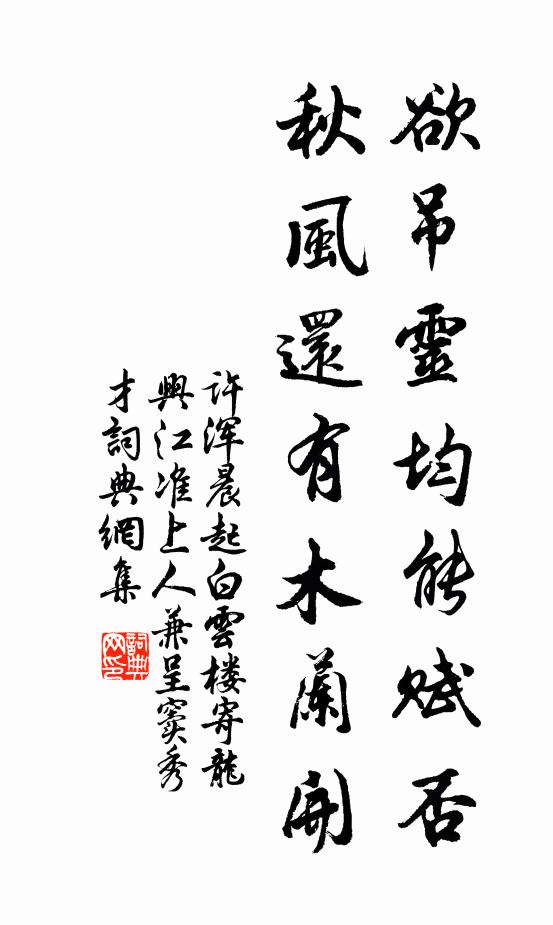 欲吊靈均能賦否
秋風還有木蘭開
许渾晨起白雲楼寄龍
興江准上人兼呈竇秀
才詞典網集
詞典
网印